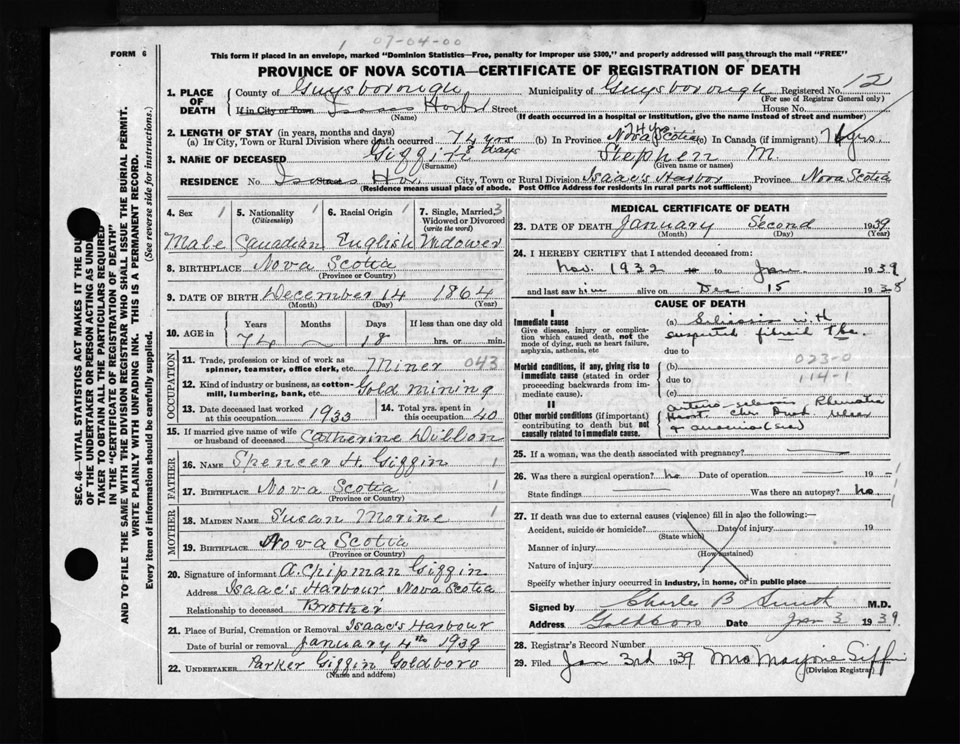 07-04-00
FORM 6
This form if placed in an envelope, marked "Dominion Statistics—Free, penalty for improper use $300," and properly addressed will pass through the mail "FREE"
PROVINCE OF NOVA SCOTIA—CERTIFICATE OF REGISTRATION OF DEATH
1. PLACE OF DEATH County of Guysborough Municipality of Guysborough Registered No. 12
(For use of Registrar General only)
If in City or Town Isaacs Harbor Street House No.
(Name) (If death occurred in a hospital or institution, give the name instead of street and number)
2. LENGTH OF STAY (in years, months and days)
(a) In City, Town or Rural Division where death occurred 74 yrs 18 days (b) In Province 74 yrs Nova Scotia (c) In Canada (if immigrant) 74 yrs
3. NAME OF DECEASED Giffin Stephen M.
(Surname) (Given name or names)
RESIDENCE No. Isaacs Hbr Street City, Town or Rural Division Isaac's Harbor Province Nova Scotia
(Residence means usual place of abode. Post Office Address for residents in rural parts not sufficient)
4. Sex 1 5. Nationality 1 (Citizenship) 6. Racial Origin 1 7. Single, Married, 3 Widowed or Divorced (write the word)
Male Canadian English Widower
8. BIRTHPLACE Nova Scotia
(Province or Country)
9. DATE OF BIRTH December 14 1864
(Month) (Day) (Year)
10. AGE in Years Months Days If less than one day old
74 — 18 hrs. or min.
OCCUPATION
11. Trade, profession or kind of work as spinner, teamster, office clerk, etc. Miner 043
12. Kind of industry or business, as cotton-mill, lumbering, bank, etc. Gold Mining
13. Date deceased last worked at this occupation 1933 14. Total yrs. spent in this occupation 40
15. If married give name of wife or husband of deceased Catherine Dillon
FATHER
16. NAME Spencer H. Giffin 1
17. BIRTHPLACE Nova Scotia
(Province or Country)
MOTHER
18. MAIDEN NAME Susan Morine 1
19. BIRTHPLACE Nova Scotia
(Province or Country)
20. Signature of informant A. Chipman Giffin
Address Isaac's Harbour Nova Scotia
Relationship to deceased Brother
21. Place of Burial, Cremation or Removal Isaac's Harbour
Date of burial or removal January 4th 1939
22. UNDERTAKER Parker Giffin Goldboro
(Name and address)
MEDICAL CERTIFICATE OF DEATH
23. DATE OF DEATH January Second 1939
(Month) (Day) (Year)
24. I HEREBY CERTIFY that I attended deceased from:
Nov. 1932 to Jan 1939
and last saw him alive on Dec 15 1938
CAUSE OF DEATH
I
Immediate cause
Give disease, injury or complication which caused death, not the mode of dying, such as heart failure, asphyxia, asthenia, etc
(a) Silicosis with
suspected fibroid Tbc.
due to
Morbid conditions, if any, giving rise to immediate cause (stated in order proceeding backwards from immediate cause).
(b) 023-0
due to 114-1
(c)
II
Other morbid conditions (if important) contributing to death but not causally related to immediate cause.
Arterio-sclerosis Rheumatic
Heart
25. If a woman, was the death associated with pregnancy? —
26. Was there a surgical operation? no Date of operation — 19 —
State findings — Was there an autopsy? no
27. If death was due to external causes (violence) fill in also the following:—
Accident, suicide or homicide? Date of injury 19
(State which)
Manner of injury
(How sustained)
Nature of injury
Specify whether injury occurred in industry, in home, or in public place
Signed by Charles B Smith M.D.
Address Goldboro Date Jan 3 1939
28. Registrar's Record Number
29. Filed Jan 3rd 1939 Mrs Marjorie Giffin
(Division Registrar)
SEC. 46—VITAL STATISTICS ACT MAKES IT THE
OF THE UNDERTAKER OR PERSON ACTING AS
TAKER TO OBTAIN ALL THE PARTICULARS REQUIRED
IN THE "CERTIFICATE OF REGISTRATION OF DEATH"
AND TO FILE THE SAME WITH THE DIVISION REGISTRAR WHO SHALL ISSUE THE BURIAL PERMIT.
WRITE PLAINLY WITH UNFADING INK. THIS IS A PERMANENT RECORD.
Every item of information should be carefully supplied. (See reverse side for instructions.)